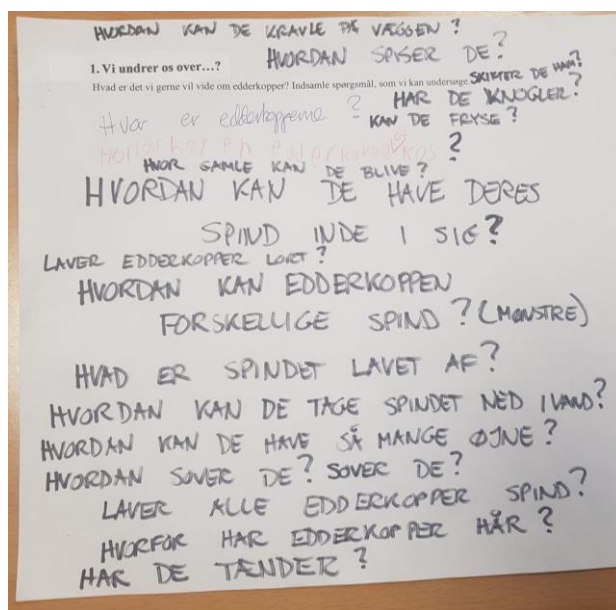 HVORDAN KAN DE KRAVLE PÅ VÆGGEN?
HVORDAN SPISER DE?
1. Vi undrer os over…?
Hvad er det vi gerne vil vide om edderkopper? Indsamle spørgsmål, som vi kan undersøge
SKIFTER DE HAM?
HAR DE KNOGLER?
Hvor er edderkopperne ?
KAN DE FRYSE?
?
HVOR GAMLE KAN DE BLIVE?
HVORDAN KAN DE HAVE DERES
SPIND INDE I SIG?
LAVER EDDERKOPPER LORT?
HVORDAN KAN EDDERKOPPEN
FORSKELLIGE SPIND? (MØNSTRE)
HVAD ER SPINDET LAVET AF?
HVORDAN KAN DE TAGE SPINDET NED I VAND?
HVORDAN KAN DE HAVE SÅ MANGE ØJNE?
HVORDAN SOVER DE? SOVER DE?
LAVER ALLE EDDERKOPPER SPIND?
HVORFOR HAR EDDERKOPPER HÅR?
HAR DE TÆNDER?